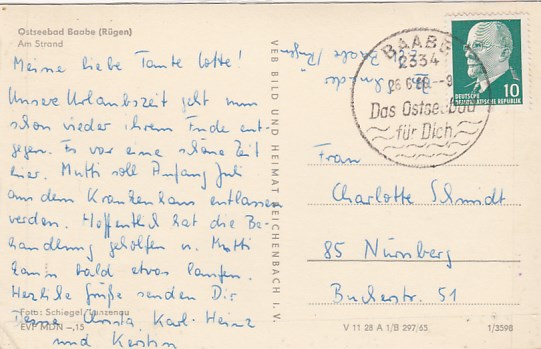 Ostseebad Baabe (Rügen)
Am Strand
Meine liebe Tante Lotte!
Unsere Urlaubszeit geht nun
schon wieder ihrem Ende ent-
gegen. Es war eine schöne Zeit
hier. Mutti soll Anfang Juli
aus dem Krankenhaus entlassen
werden. Hoffentlich hat die Be-
handlung geholfen u. Mutti
kann bald etwas laufen.
Herzliche Grüße senden Dir
Deine Christa, Karl-Heinz
und Kerstin
Foto: Schiegel, Lunzenau
EVP MDN -,15
VEB BILD UND HEIMAT REICHENBACH I. V.
Baabe/Rügen
BAABE
2334
-9
Das Ostseebad
für Dich
10
DEUTSCHE
DEMOKRATISCHE REPUBLIK
Frau
Charlotte Schmidt
85 Nürnberg
Bucherstr. 51
V 11 28 A 1/B 297/65
1/3598